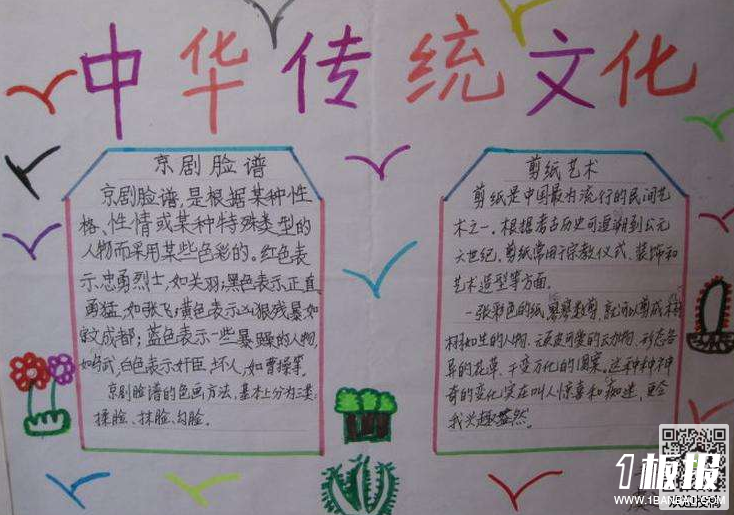 中华传统文化
京剧脸谱
京剧脸谱,是根据某种性
格、性情或某种特殊类型的
人物而采用某些色彩的。红色表
示忠勇烈士,如关羽;黑色表示正直
勇猛,如张飞;黄色表示凶狠残暴,如
成都;蓝色表示一些暴躁的人物,
如 武,白色表示奸臣、坏人,如曹操等。
京剧脸谱的色画方法,基本上分为三类:
揉脸、抹脸、勾脸。
剪纸艺术
剪纸是中国最为流行的民间艺
术之一,根据考古历史可追溯到公元
六世纪。剪纸常用于宗教仪式、装饰和
艺术造型等方面。
一张彩色的纸, 数剪,就可以剪成栩
栩如生的人物、 可爱的动物、形态各
异的花草、千变万化的图案。这种种神
奇的变化实在叫人惊喜和痴迷,更令
我兴趣盎然。
1板报
WWW.1BANBAO.COM
欢迎投稿